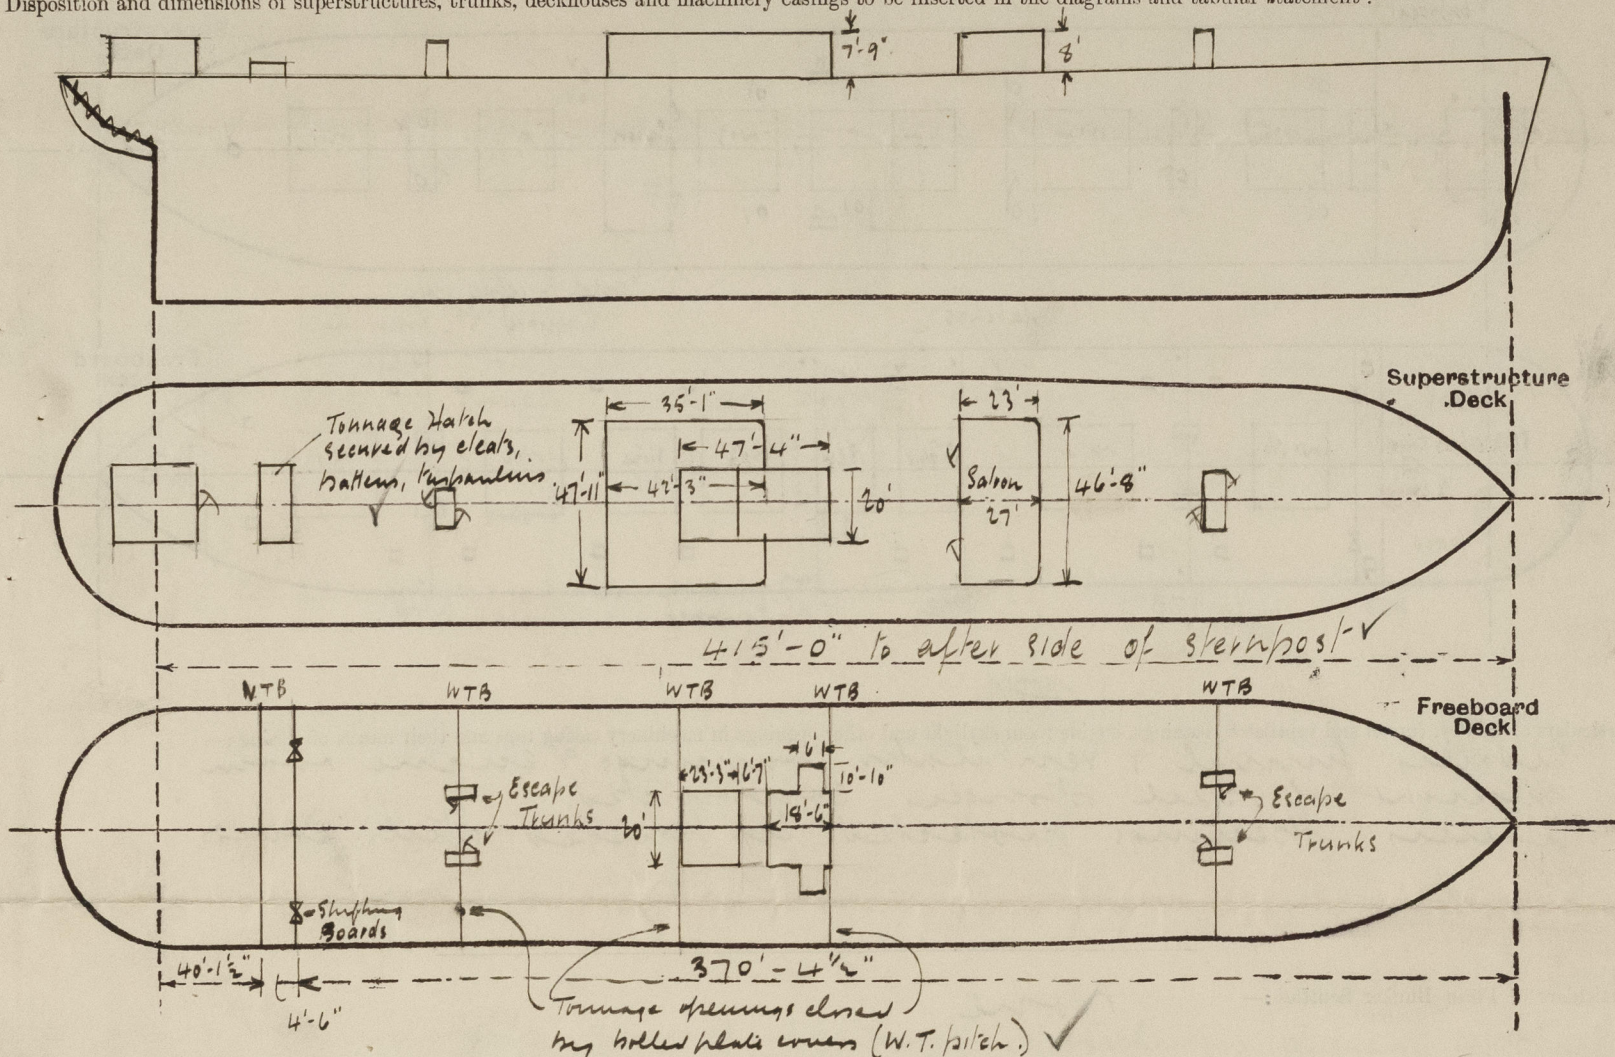 Disposition and dimensions of superstructures, trunks, deckhouses and machinery casings to be inserted in the diagrams and tabular statement :
7'-9"
8'
Superstructure
Deck
Tonnage Hatch
secured by cleats,
battens, tarpaulins
35'-1"
47'-4"
47'-11"
42'-3"
20'
23'
Saloon
27'
46'-8"
415'-0" to after side of sternpost
WTB
WTB
WTB
WTB
WTB
Freeboard
Deck
Escape
Trunks
23'-3"
6'-7"
6'
10'-10"
18'-6"
20'
Escape
Trunks
Shifting
Boards
40'-1½"
4'-6"
370'-4½"
Tonnage openings closed
by bolted plate covers (W.T. pitch.)